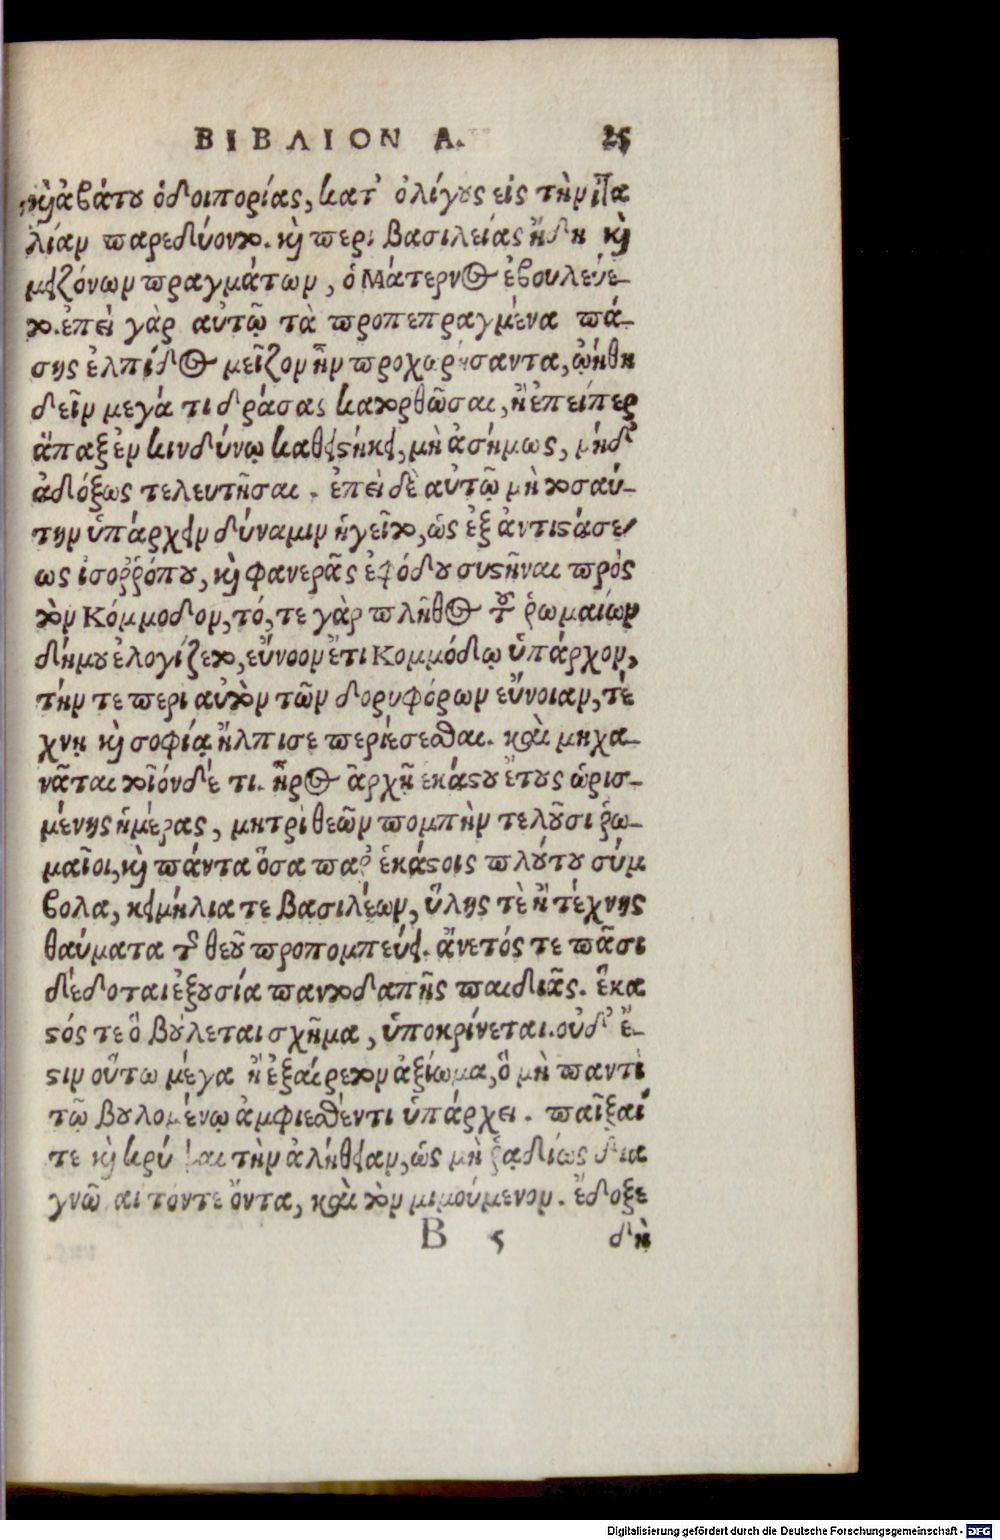 ΒΙΒΛΙΟΝ Α. 25
καὶ ἀβάτου ὁδοιπορίας, κατ' ὀλίγους εἰς τὴν ἰτα
λίαν παρεδύοντο. καὶ περὶ βασιλείας ἤδη καὶ
μειζόνων πραγμάτων, ὁ Μάτερνος ἐβουλεύε-
το. ἐπεὶ γὰρ αὐτῷ τὰ προπεπραγμένα πά-
σης ἐλπίδος μεῖζον ἦν προχωρήσαντα, ᾠήθη
δεῖν μεγά τι δράσας κατορθῶσαι, ἢ ἐπείπερ
ἅπαξ ἐν κινδύνῳ καθειστήκει, μὴ ἀσήμως, μήδ'
ἀδόξως τελευτῆσαι. ἐπεὶ δὲ αὐτῷ μὴ τοσαύ-
την ὑπάρχειν δύναμιν ἡγεῖτο, ὡς ἐξ ἀντιστάσε
ως ἰσοῤῥόπου, καὶ φανερᾶς ἐφόδου συστῆναι πρὸς
τὸν Κόμμοδον, τό, τε γὰρ πλῆθος τοῦ ῥωμαίων
δήμου ἐλογίζετο, εὔνοον ἔτι Κομμόδῳ ὑπάρχον,
τήν τε περι αὐτὸν τῶν δορυφόρων εὔνοιαν, τέ
χνῃ καὶ σοφίᾳ ἤλπισε περιέσεσθαι. καὶ μηχα-
νᾶται τοιόνδέ τι. ἦρος ἀρχῇ ἑκάστου ἔτους ὡρισ-
μένης ἡμέρας, μητρὶ θεῶν πομπὴν τελοῦσι ῥω-
μαῖοι, καὶ πάντα ὅσα παρ' ἑκάστοις πλούτου σύμ
βολα, κειμήλια τε βασιλέων, ὕλης τὲ ἢ τέχνης
θαύματα τῆς θεοῦ προπομπεύει. ἄνετός τε πᾶσι
δέδοται ἐξουσία παντοδαπῆς παιδιᾶς. ἕκα
στός τε ὃ βούλεται σχῆμα, ὑποκρίνεται. οὐδ' ἔ-
στιν οὕτω μέγα ἢ ἐξαίρετον ἀξίωμα, ὃ μὴ παντὶ
τῷ βουλομένῳ ἀμφιεσθέντι ὑπάρχει. παῖξαί
τε καὶ κρύψαι τὴν ἀλήθειαν, ὡς μὴ ῥᾳδίως δια
γνῶναι τόντε ὄντα, καὶ τὸν μιμούμενον. ἔδοξε
Β 5 δὴ
Digitalisierung gefördert durch die Deutsche Forschungsgemeinschaft - DFG